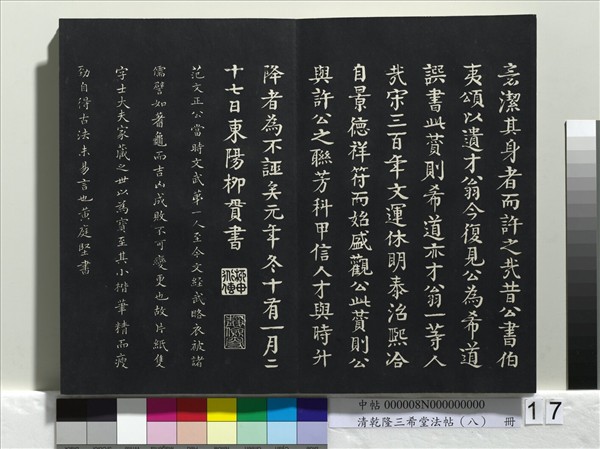 忘潔其身者而許之哉昔公書伯
夷頌以遺才翁今復見公為希道
譔書此賛則希道亦才翁一等人
哉宋三百年文運休明泰治熙洽
自景德祥符而始盛觀公此賛則公
與許公之聯芳科甲信人才與時升
降者為不誣矣元年冬十有一月二
十七日東陽柳貫書
范文正公當時文武第一人至今文經武略衣被諸
儒譬如蓍龜而吉凶成敗不可變更也故片紙隻
字士大夫家藏之世以為寶至其小楷筆精而瘦
勁自得古法未易言也黃庭堅書
中帖 000008N000000000
清乾隆三希堂法帖(八) 冊
17